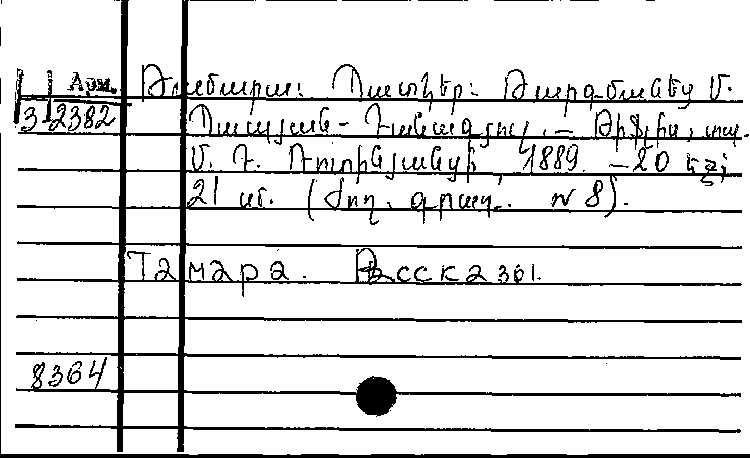 Арм. Թամարա: Պատկեր: Թարգմանեց Մ.
3-2382 Պապյան - Դանագյոզ. — Թիֆլիս, տպ.
Մ. Դ. Ռոտինյանցի, 1889. — 20 էջ;
21 սմ. (Ժող. գրադ. № 8).
Тамара. Рассказы.
8364